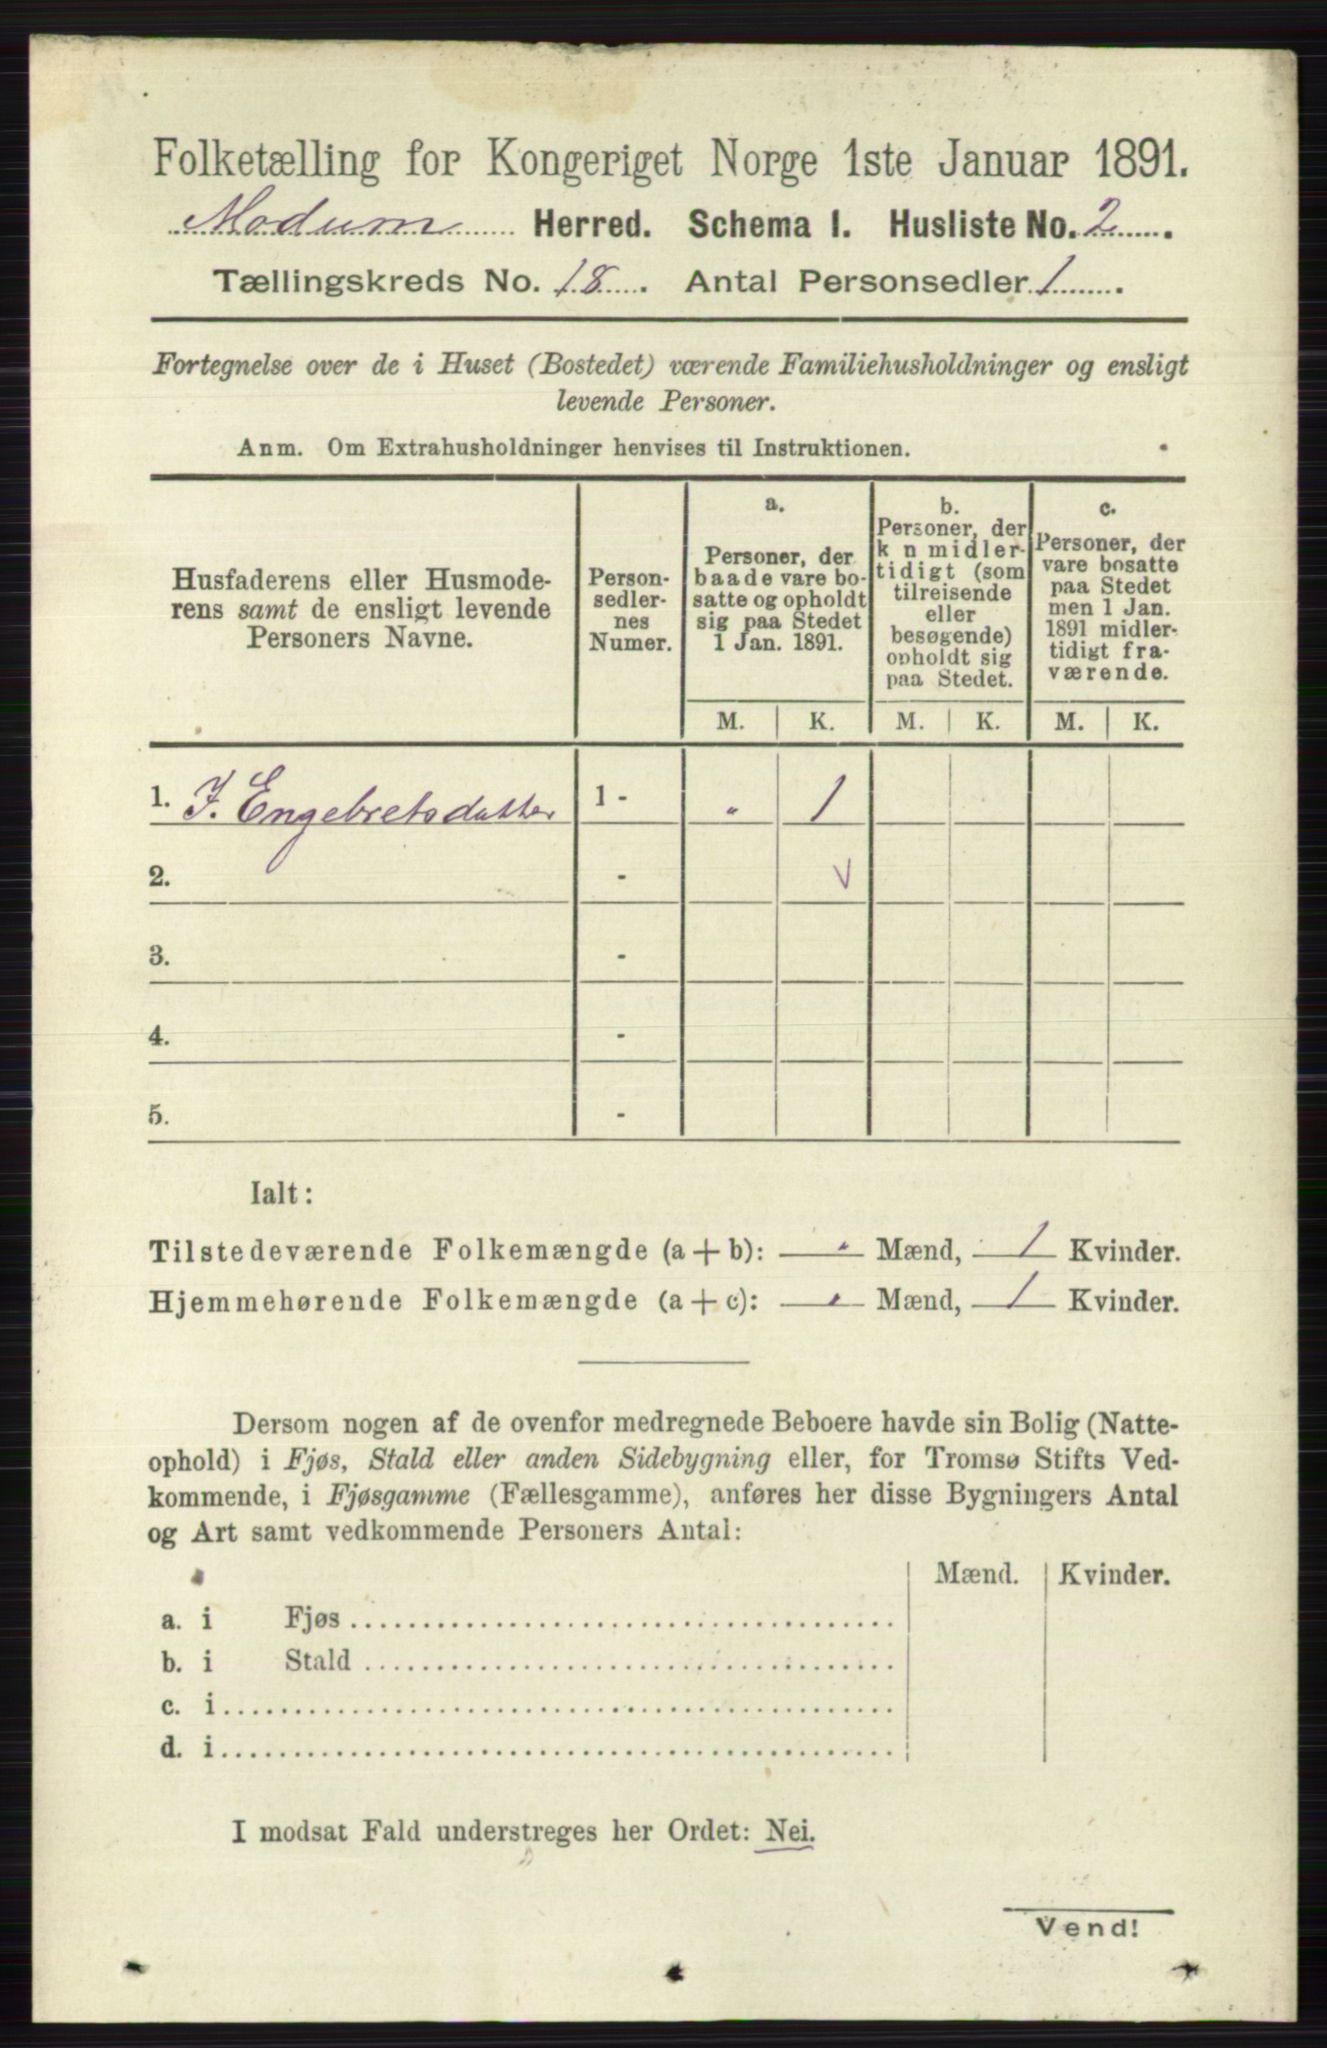 Folketælling for Kongeriget Norge 1ste Januar 1891.
Modum Herred. Schema 1. Husliste No. 2
Tællingskreds No. 18. Antal Personsedler 1
Fortegnelse over de i Huset (Bostedet) værende Familiehusholdninger og ensligt
levende Personer.
Anm. Om Extrahusholdninger henvises til Instruktionen.
Husfaderens eller Husmode-
rens samt de ensligt levende
Personers Navne.
Person-
sedler-
nes
Numer.
a.
Personer, der
baade vare bo-
satte og opholdt
sig paa Stedet
1 Jan. 1891.
b.
Personer, der
k n midler-
tidigt (som
tilreisende
eller
besøgende)
opholdt sig
paa Stedet.
c.
Personer, der
vare bosatte
paa Stedet
men 1 Jan.
1891 midler-
tidigt fra-
værende.
M. K. M. K. M. K.
1. J. Engebretsdatter 1 - " 1
2. - V
3. -
4. -
5. -
Ialt:
Tilstedeværende Folkemængde (a + b): " Mænd, 1 Kvinder.
Hjemmehørende Folkemængde (a + c): " Mænd, 1 Kvinder.
Dersom nogen af de ovenfor medregnede Beboere havde sin Bolig (Natte-
ophold) i Fjøs, Stald eller anden Sidebygning eller, for Tromsø Stifts Ved-
kommende, i Fjøsgamme (Fællesgamme), anføres her disse Bygningers Antal
og Art samt vedkommende Personers Antal:
Mænd. Kvinder.
a. i Fjøs
b. i Stald
c. i
d. i
I modsat Fald understreges her Ordet: Nei.
Vend!